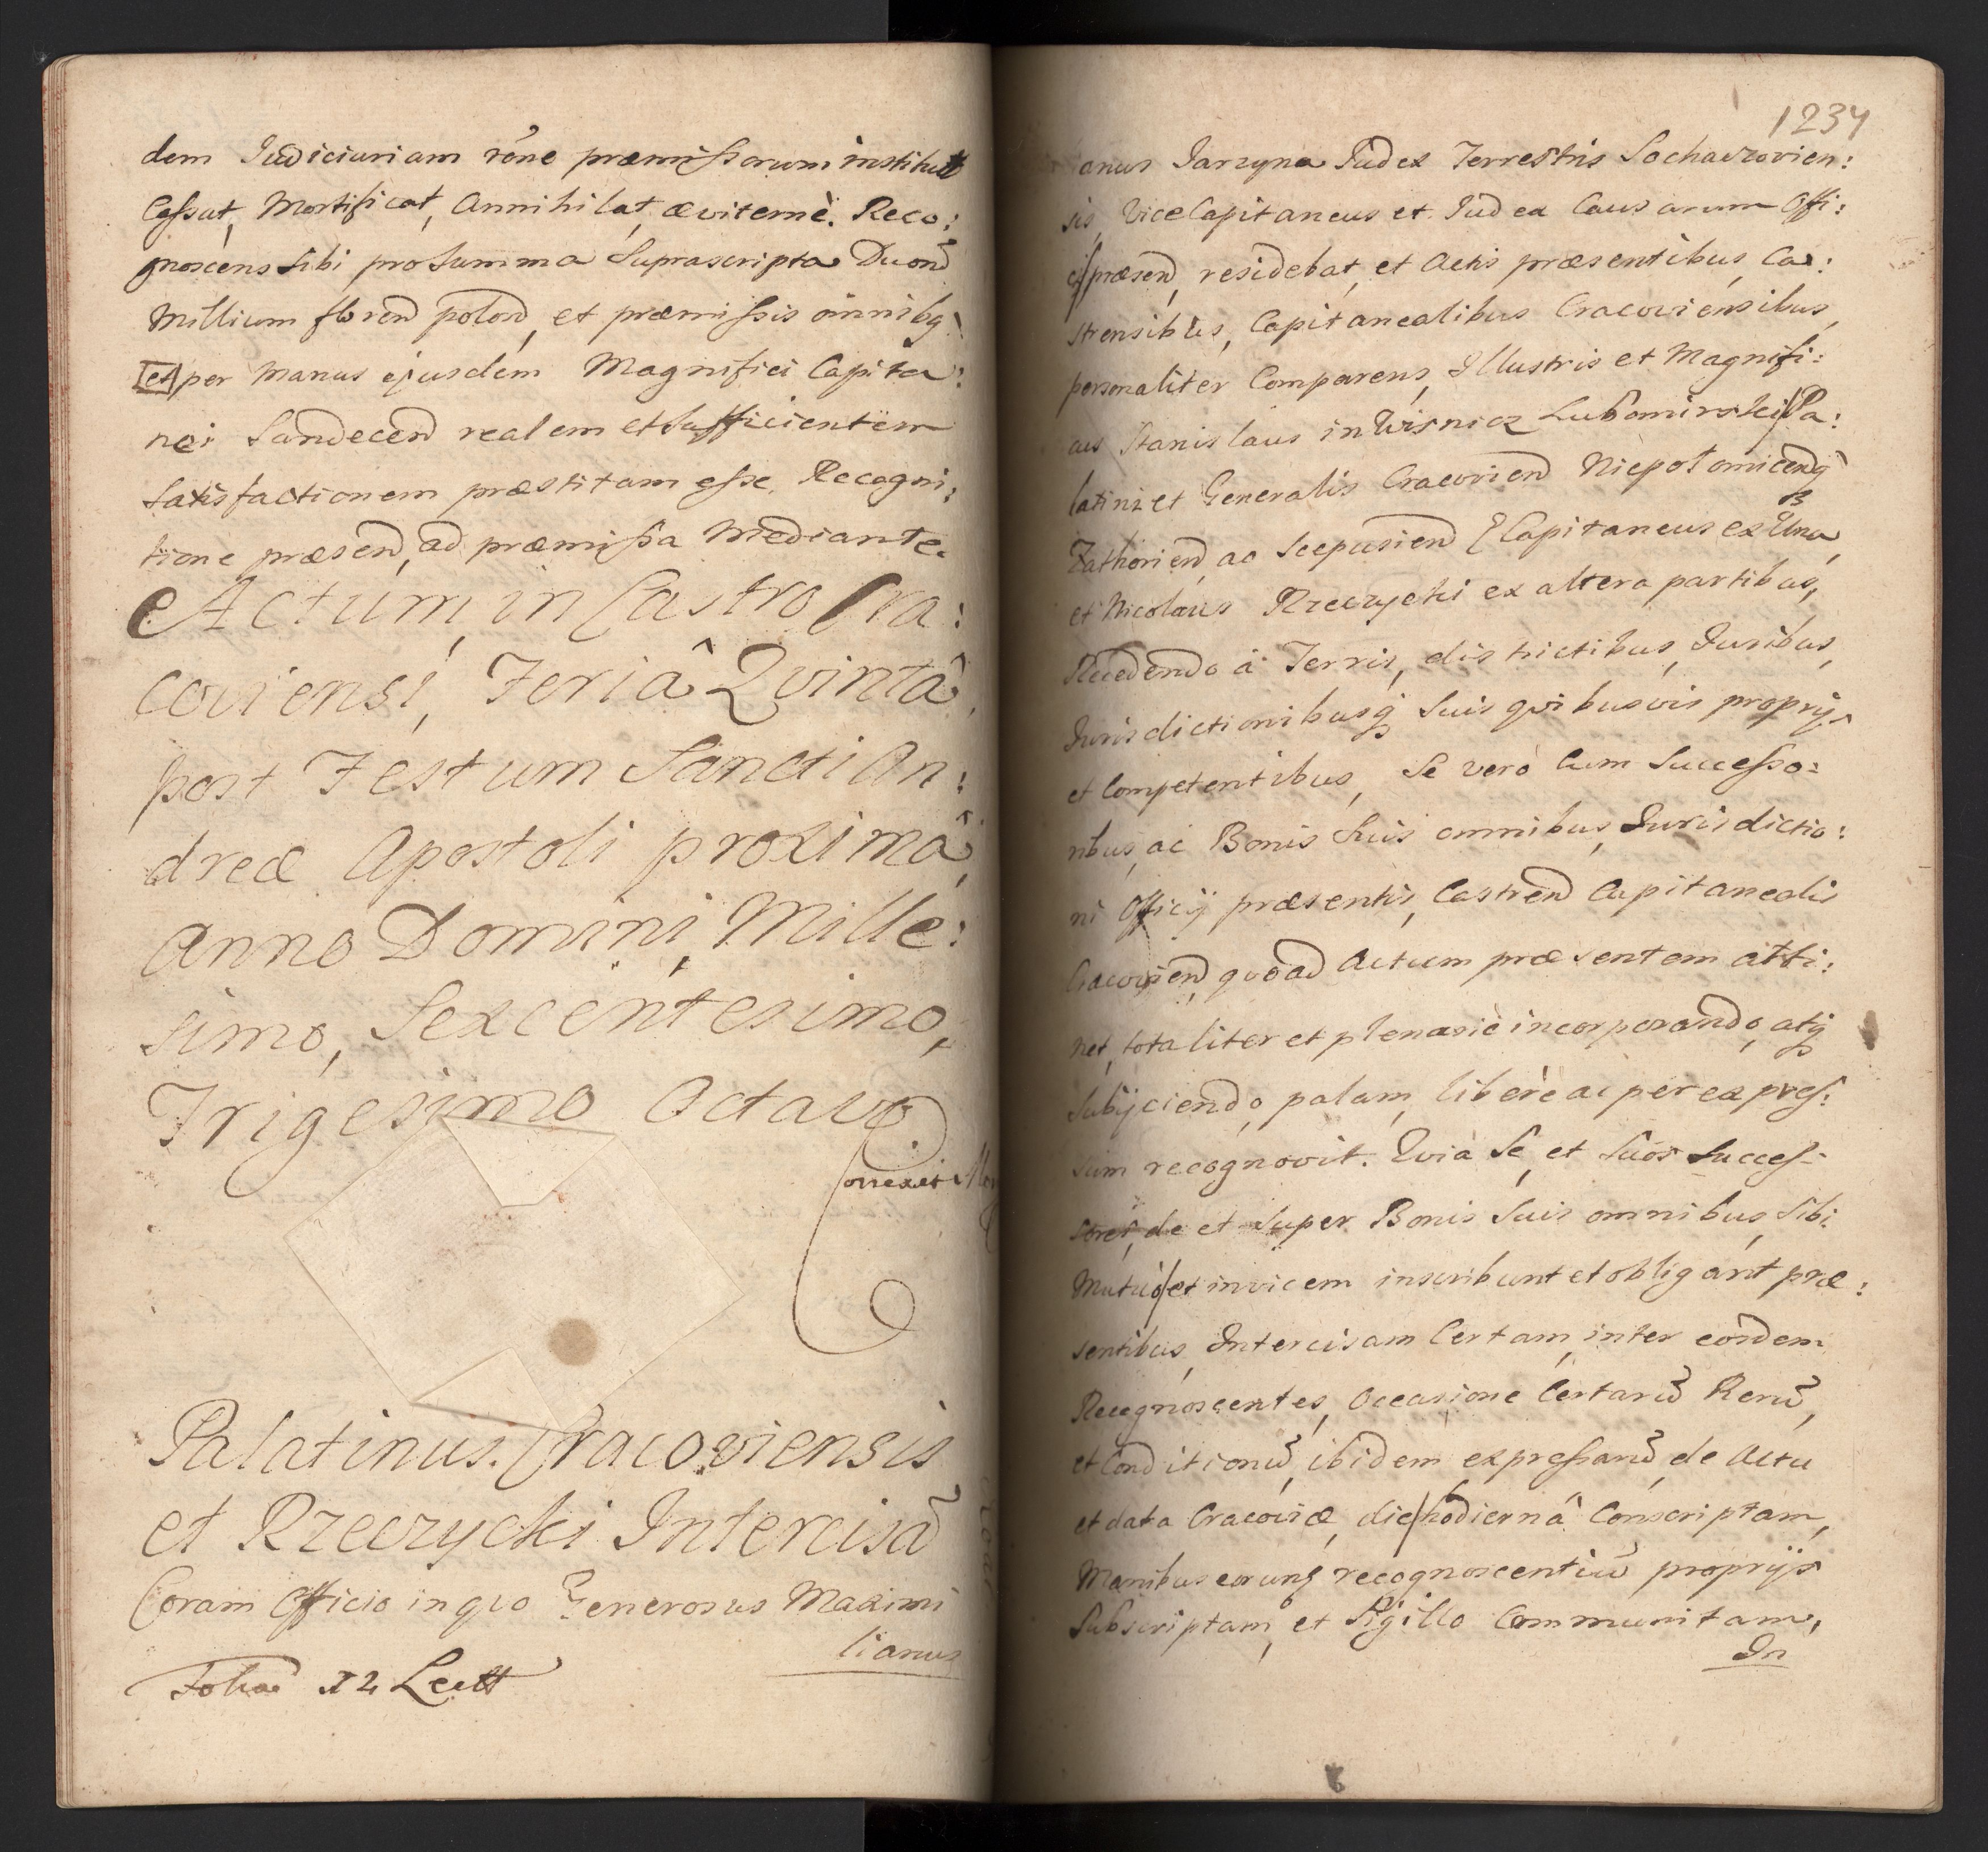 dem Judiciariam rōne præmissorum institutt
Cassat, Mortificat, Annihilat æviternè. Reco:
gnoscens sibi pro Summa Suprascripta Duond
Millium florend polond, et præmissis omnibq
et per Manus ejusdem Magnifici Capita:
nei Sandecend realem et Sufficientem
Satisfactionem præstitam esse, Recogni:
tione præsend, ad præmissa Mediante.
Actum, in Castro Cra:
coviensi, Feriâ Qvintâ,
post Festum Sancti An:
dreæ Apostoli proximâ,
Anno Domini, Mille:
simo, Sexcentesimo,
Trigesimo Octavo.
Correxit
Palatinus. Cracoviensis
et Rzeczycki Intercisã
Coram Officio in qvo Generosus Maximi
lianus
Folia 12 Lectt
1234
anus Jarzyna Judex Terrestris Sochaczovien:
sis, ViceCapitaneus et Judex Causarum Offi:
cij præsend, residebat, et Actis præsentibus, Ca:
strensibus, Capitanealibus Cracoviensibus,
personaliter Comparens, Illustris et Magnifi:
cus Stanislaus in Wisnicz Lubomirski Pa:
latini et Generalis Cracoviend Niepołomicenq
Zathoriend, ac Scepusiend Capitaneus ex Una,
et Nicolaus Rzeczycki ex altera partibus,
Recedendo à Terris, districtibus, Juribus,
Jurisdictionibusq Suis qvibusvis proprijs
et Competentibus, Se verò Cum Successo:
ribus, ac Bonis Suis omnibus, Jurisdictio:
ni Officij præsentis, Castrend Capitanealis
Cracoviend qvoad Actum præsentem atti:
net, totaliter et plenariè incorporando, atq
Subijciendo, palam, liberè ac per expres:
sum recognovit. Qvia Se, et Suos Succes-
sores, de et Super Bonis Suis omnibus, Sibi
Mutuò et invicem inscribunt et obligant præ:
sentibus, Intercisam Certam, inter eosdem
Recognoscentes, Occasione Certarũ Rerũ,
et Conditionũ, ibidem expressarũ, de Actu
et data Cracoviæ, die hodiernâ Conscriptam,
Manibus eorung recognoscentiũ proprijs
Subscriptam, et Sigillo Communitam,
In